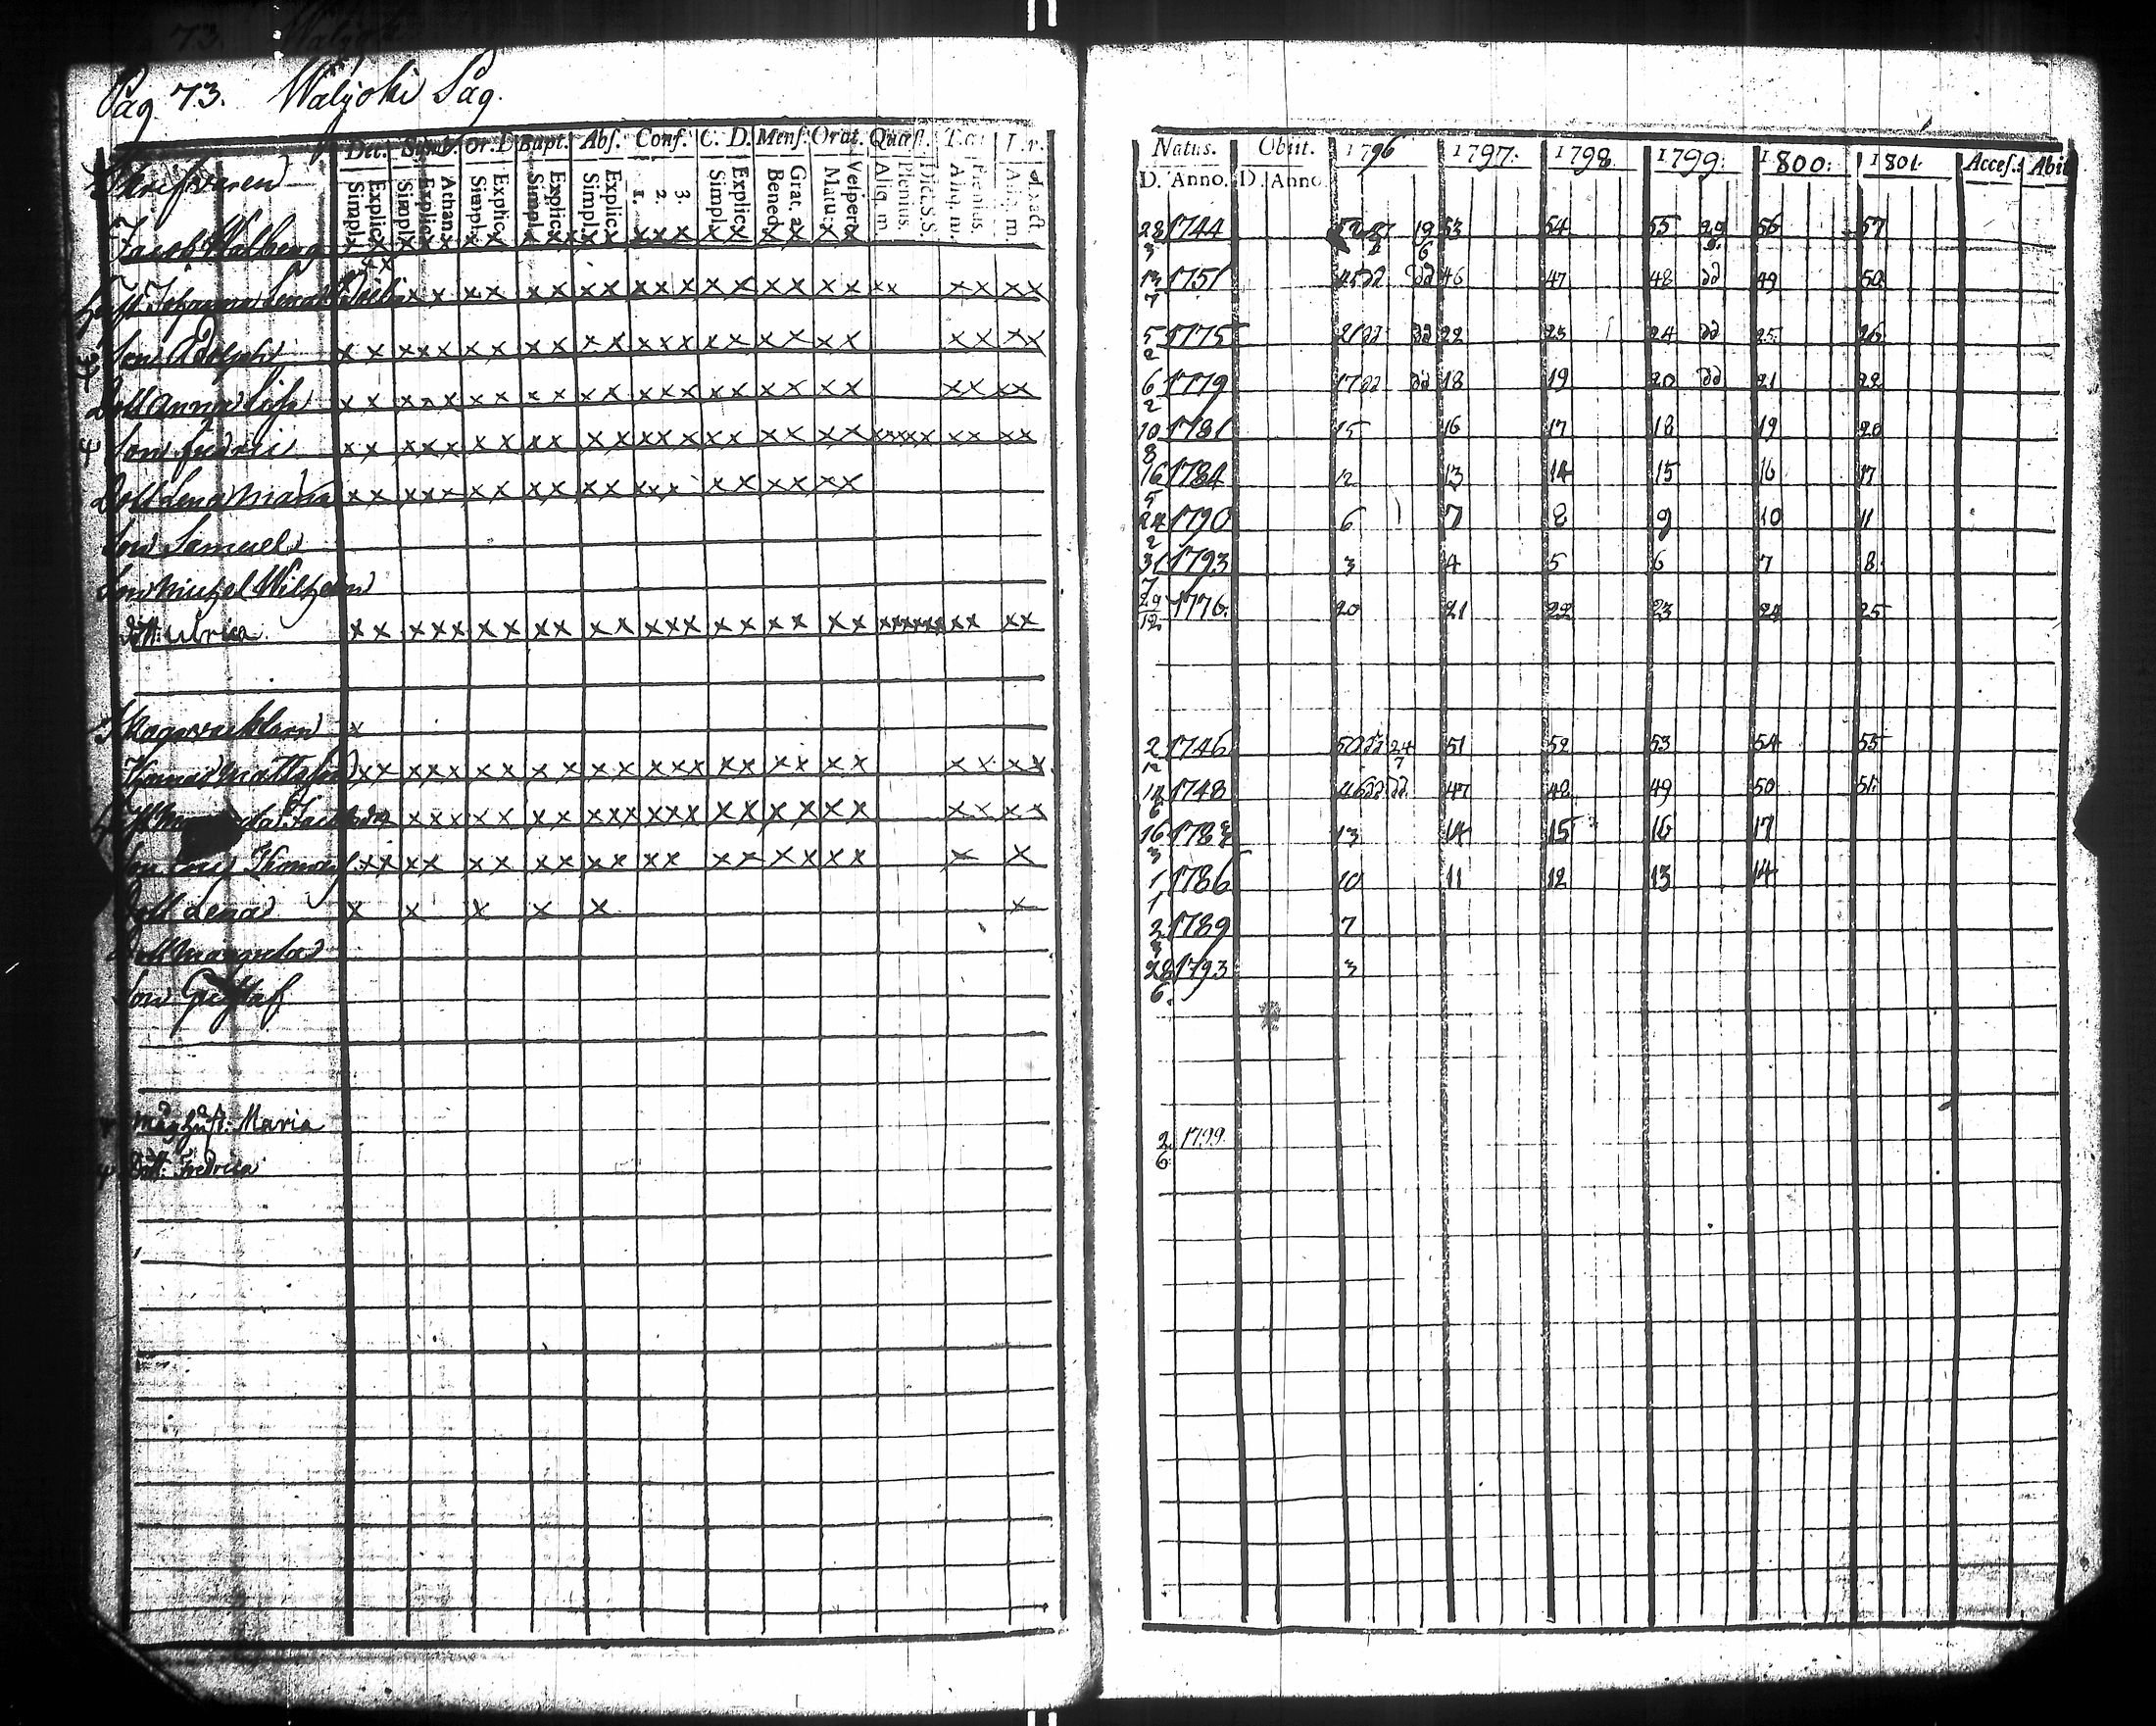 Pag. 73. Waljoki Såg.
Dec. Simb. Or. D Bapt. Abs. Conf. C. D. Mens. Orat. Quæst. T.a.
Simpl. Explic. Simpl. Explic. Athan. Simpl. Explic. Simpl. Explic. Simpl. Explic. 1. 2. 3. Simpl. Explic. Bened. Grat. a. Matut. Vespert. Aliq. m. Plenius. Dict. S.S. Aliq. m. Plenius. Aliq. m. Exact
Natus. Obiit. 1796 1797. 1798 1799. 1800. 1801. Access. Abiit
D. Anno. D. Anno.
Jacob Walberg 28/3 1744 19/6 53 54 55 56 57
Hust. Johanna 13/7 1751 45 dd dd 46 47 48 dd 49 50
Son Adolph 5/2 1775 21 dd dd 22 23 24 dd 25 26
Dott Anna Lisa 6/2 1779 17 dd dd 18 19 20 dd 21 22
Son Fredric 10/8 1781 15 16 17 18 19 20
Dott Lena Maria 16/5 1784 12 13 14 15 16 17
Son Samuel 24/2 1790 6 7 8 9 10 11
Son Michel Wilhelm 31/7 1793 3 4 5 6 7 8
Dott. Ulrica 29/12 1776. 20 21 22 23 24 25
Thomas Mattsson 2/12 1746 50 dd 24/7 51 52 53 54 55
1748 46 dd dd 47 48 49 50 51
Son Thomas 16/3 13 14 15 16 17
Dott Lena 1/1 1786 10 11 12 13 14
Dott Margreta 2/3 1789 7
Son Gustaf 28/6 1793 3
Måg hust. Maria
Dott. Fredrica 2/6 1799.